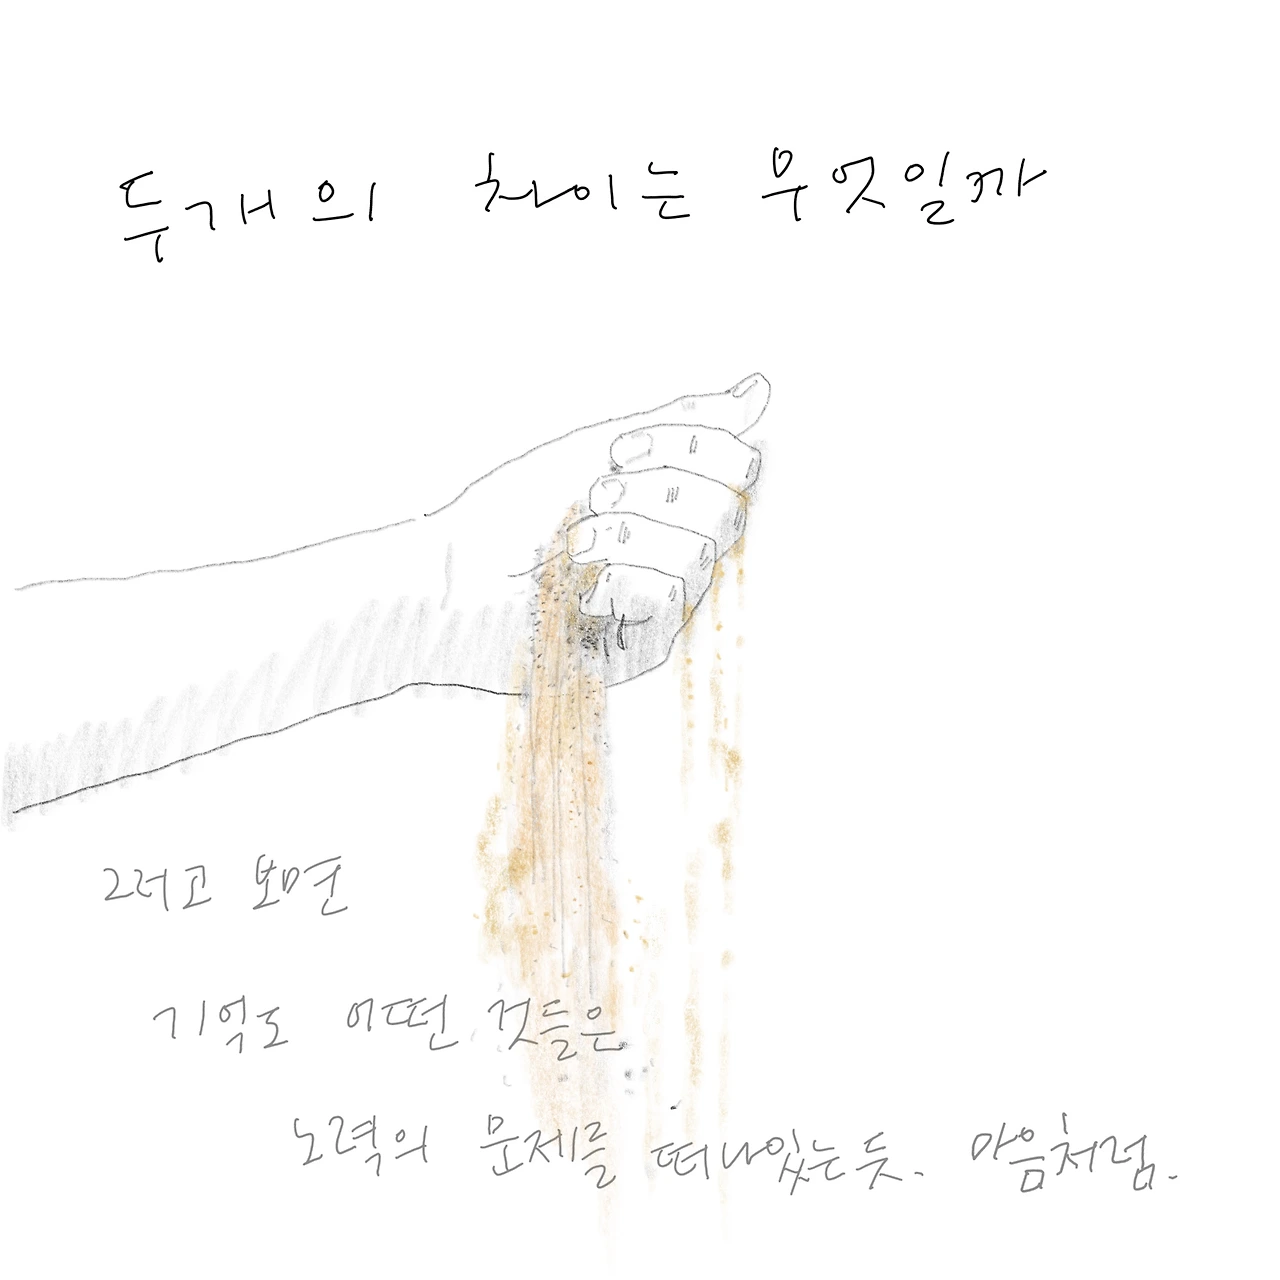 두개의 차이는 무엇일까
그러고 보면
기억도 어떤 것들은
노력의 문제를 떠나있는듯. 마음처럼.